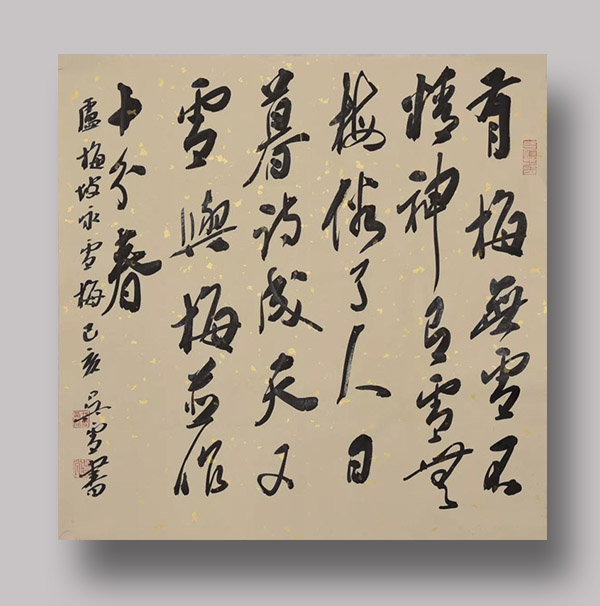 有梅無雪不
精神有雪無
梅俗了人日
暮詩成天又
雪與梅並作
十分春
盧梅坡咏雪梅己亥吴雪書